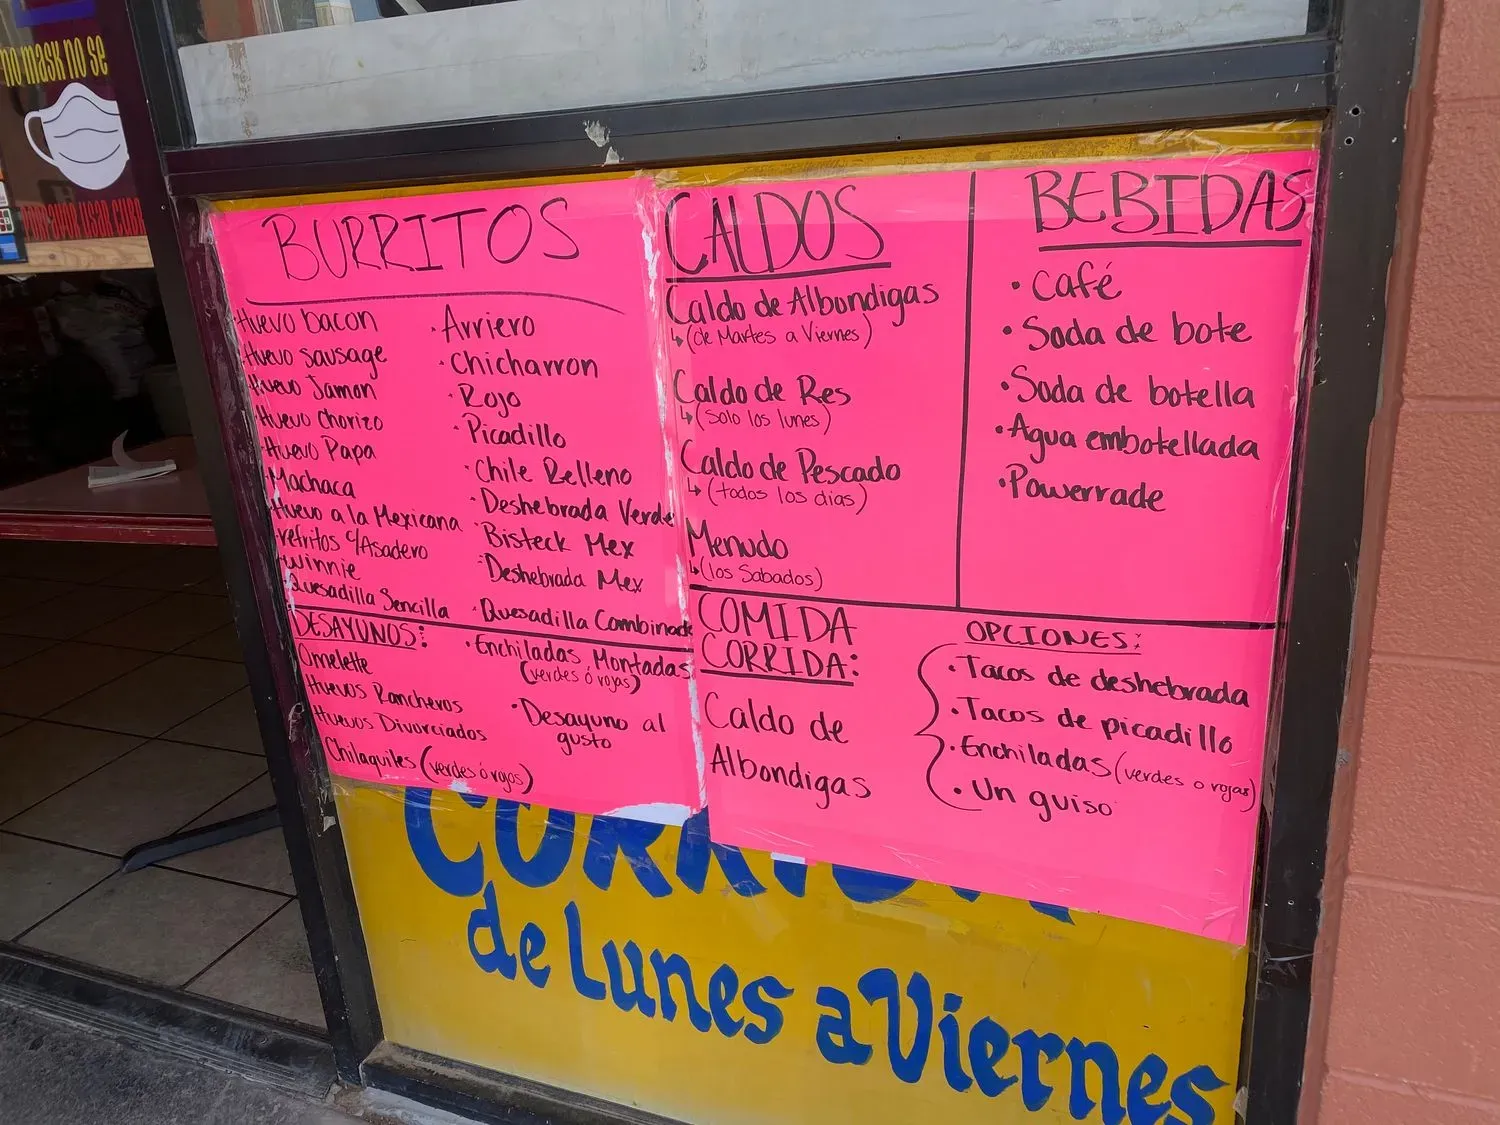 no mask no se
POR FAVOR USAR CUBR
BURRITOS
Huevo bacon
Huevo Sausage
Huevo Jamon
Huevo Chorizo
Huevo Papa
Machaca
Huevo a la Mexicana
refritos c/Asadero
Winnie
Quesadilla Sencilla
Arriero
Chicharron
Rojo
Picadillo
Chile Relleno
Deshebrada Verde
Bisteck Mex
Deshebrada Mex
Quesadilla Combinada
DESAYUNOS:
Omelette
Huevos Rancheros
Huevos Divorciados
Chilaquiles (verdes ó rojos)
Enchiladas Montadas
(verdes ó rojas)
Desayuno al
gusto
CALDOS
Caldo de Albondigas
↳ (de Martes a Viernes)
Caldo de Res
↳ (solo los lunes)
Caldo de Pescado
↳ (todos los dias)
Menudo
↳ (los Sabados)
BEBIDAS
• Café
• Soda de bote
• Soda de botella
• Agua embotellada
• Powerrade
COMIDA
CORRIDA:
Caldo de
Albondigas
OPCIONES:
• Tacos de deshebrada
• Tacos de picadillo
• Enchiladas (verdes o rojas)
• Un guiso
de Lunes a Viernes